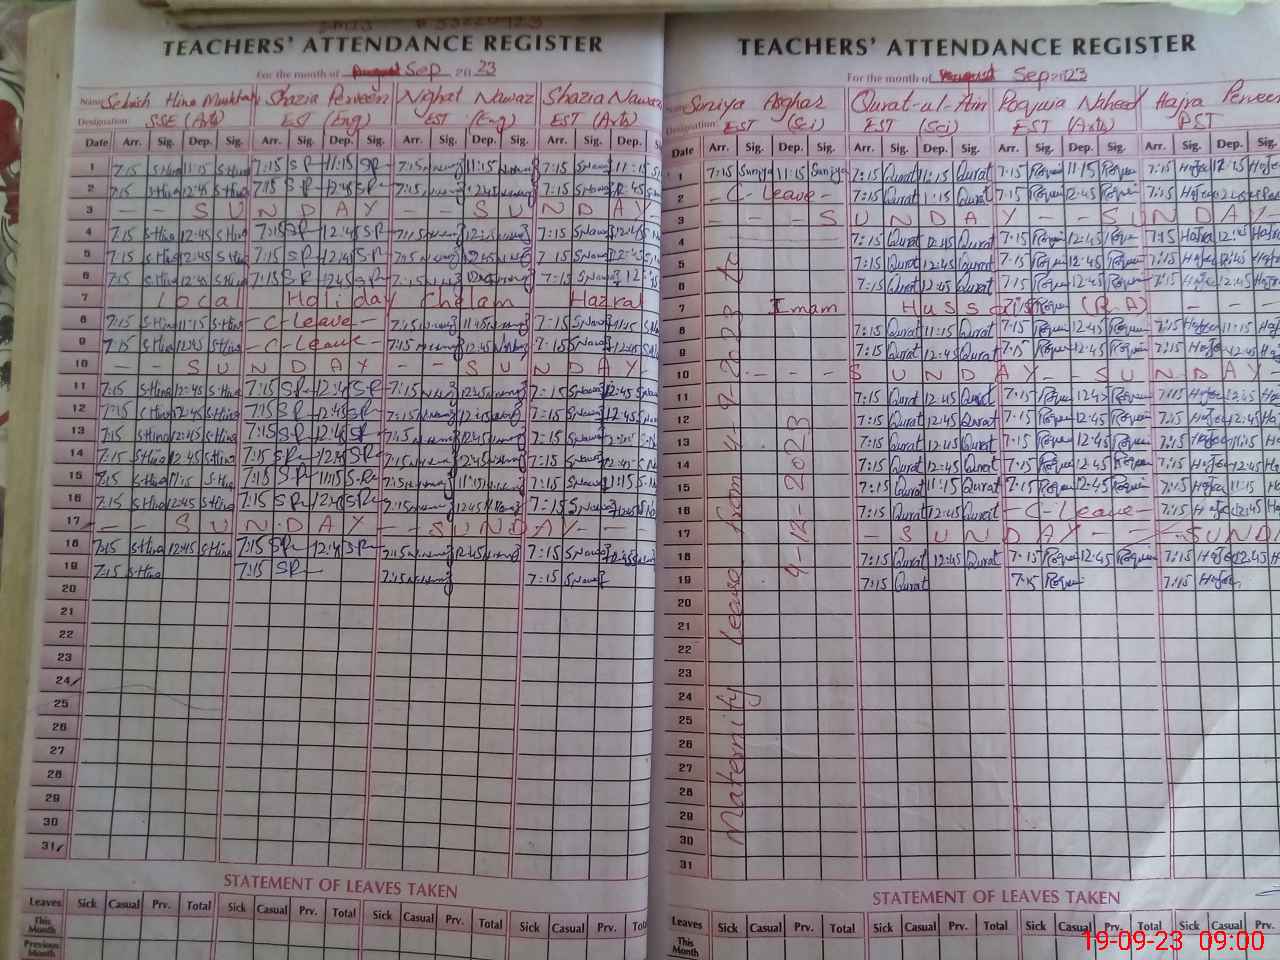 TEACHERS' ATTENDANCE REGISTER
For the month of August Sep 2023
Name Sebish Hina Shazia Perveen Nighat Nawaz Shazia Nawaz
Designation: SSE (Arts) EST (Eng) EST (Eng) EST (Arts)
Date Arr. Sig. Dep. Sig. Arr. Sig. Dep. Sig. Arr. Sig. Dep. Sig. Arr. Sig. Dep.
1 7:15 S-Hina 11:15 S-Hina 7:15 SP 11:15 SP 7:15 11:15 7:15 SNawaz 11:15
2 7:15 S-Hina 12:45 S-Hina 7:15 SP 12:45 SP 7:15 12:45 7:15 SNawaz 12:45
3 - - S U N D A Y - - S U N D A Y -
4 7:15 S-Hina 12:45 S-Hina 7:15 SP 12:45 SP 7:15 7:15 SNawaz 12:45
5 7:15 S-Hina 12:45 S-Hina 7:15 SP 12:45 SP 7:15 12:45 7:15 SNawaz 12:45
6 7:15 S-Hina 12:45 S-Hina 7:15 SP 12:45 SP 7:15 7:15 SNawaz 12
7 Local Holiday Chelam Hazrat
8 7:15 S-Hina 11:15 S-Hina - C-Leave - 7:15 11:45 7:15 SNawaz 11:15
9 7:15 S-Hina 12:45 S-Hina - C-Leave - 7:15 12:45 7:15 SNawaz 12:45
10 - - S U N D A Y - - S U N D A Y -
11 7:15 S-Hina 12:45 S-Hina 7:15 SP 12:45 SP 7:15 12:45 7:15 SNawaz 12:45
12 7:15 S-Hina 12:45 S-Hina 7:15 SP 12:45 SP 7:15 12:45 7:15 SNawaz 12:45
13 7:15 S-Hina 12:45 S-Hina 7:15 SP 12:45 SP 7:15 12:45 7:15 SNawaz
14 7:15 S-Hina 12:45 S-Hina 7:15 SP 12:45 SP 7:15 12:45 7:15 SNawaz 12:45
15 7:15 S-Hina 11:15 S-Hina 7:15 SP 11:15 SP 7:15 11:15 7:15 SNawaz 11:15
16 7:15 S-Hina 12:45 S-Hina 7:15 SP 12:45 SP 7:15 12:45 7:15 SNawaz 12:45
17 - - S U N D A Y - - S U N D A Y - -
18 7:15 S-Hina 12:45 S-Hina 7:15 SP 12:45 SP 7:15 12:45 7:15 SNawaz 12:45
19 7:15 S-Hina 7:15 SP 7:15 7:15 SNawaz
20
21
22
23
24
25
26
27
28
29
30
31
STATEMENT OF LEAVES TAKEN
Leaves Sick Casual Prv. Total Sick Casual Prv. Total Sick Casual Prv. Total Sick Casual Prv.
This Month
Previous Month
TEACHERS' ATTENDANCE REGISTER
For the month of August Sep 2023
Name Suriya Asghar Qurat-ul-Ain Naheed Hajra Perveen
Designation: EST (Sci) EST (Sci) EST (Arts) PST
Date Arr. Sig. Dep. Sig. Arr. Sig. Dep. Sig. Arr. Sig. Dep. Sig. Arr. Sig. Dep. Sig.
1 7:15 Suriya 11:15 Suriya 7:15 Qurat 11:15 Qurat 7:15 11:15 7:15 Hajra 12:15 Hajra
2 - C- Leave - 7:15 Qurat 11:15 Qurat 7:15 12:45 7:15 Hajra 12:45
3 - - - S U N D A Y - - S U N D A Y -
4 7:15 Qurat 12:45 Qurat 7:15 12:45 7:15 Hajra 12:45 Hajra
5 7:15 Qurat 12:45 Qurat 7:15 12:45 7:15 Hajra 12:45 Hajra
6 7:15 Qurat 12:45 Qurat 7:15 12:45 7:15 Hajra 12:45 Hajra
7 Imam Hussain (R.A) - - -
8 7:15 Qurat 11:15 Qurat 7:15 12:45 7:15 Hajra 11:15 Hajra
9 7:15 Qurat 12:45 Qurat 7:15 12:45 7:15 Hajra 12:45
10 - - - S U N D A Y - S U N D A Y -
11 7:15 Qurat 12:45 Qurat 7:15 12:45 7:15 Hajra 12:45
12 7:15 Qurat 12:45 Qurat 7:15 12:45 7:15 Hajra 12:45
13 7:15 Qurat 12:45 Qurat 7:15 12:45 7:15 Hajra 11:15
14 7:15 Qurat 12:45 Qurat 7:15 12:45 7:15 Hajra 12:45
15 7:15 Qurat 11:15 Qurat 7:15 12:45 7:15 Hajra 11:15
16 7:15 Qurat 12:45 Qurat - C-Leave - 7:15 Hajra 12:45
17 - S U N D A Y - - S U N D
18 7:15 Qurat 12:45 Qurat 7:15 12:45 7:15 Hajra 12:45
19 7:15 Qurat 7:15 7:15 Hajra
20
21
22
23
24
25
26
27
28
29
30
31
Maternity leave from 4-9-2023 to
4-12-2023
STATEMENT OF LEAVES TAKEN
Leaves Sick Casual Prv. Total Sick Casual Prv. Total Sick Casual Prv. Total Sick Casual Prv.
This Month
19-09-23 09:00